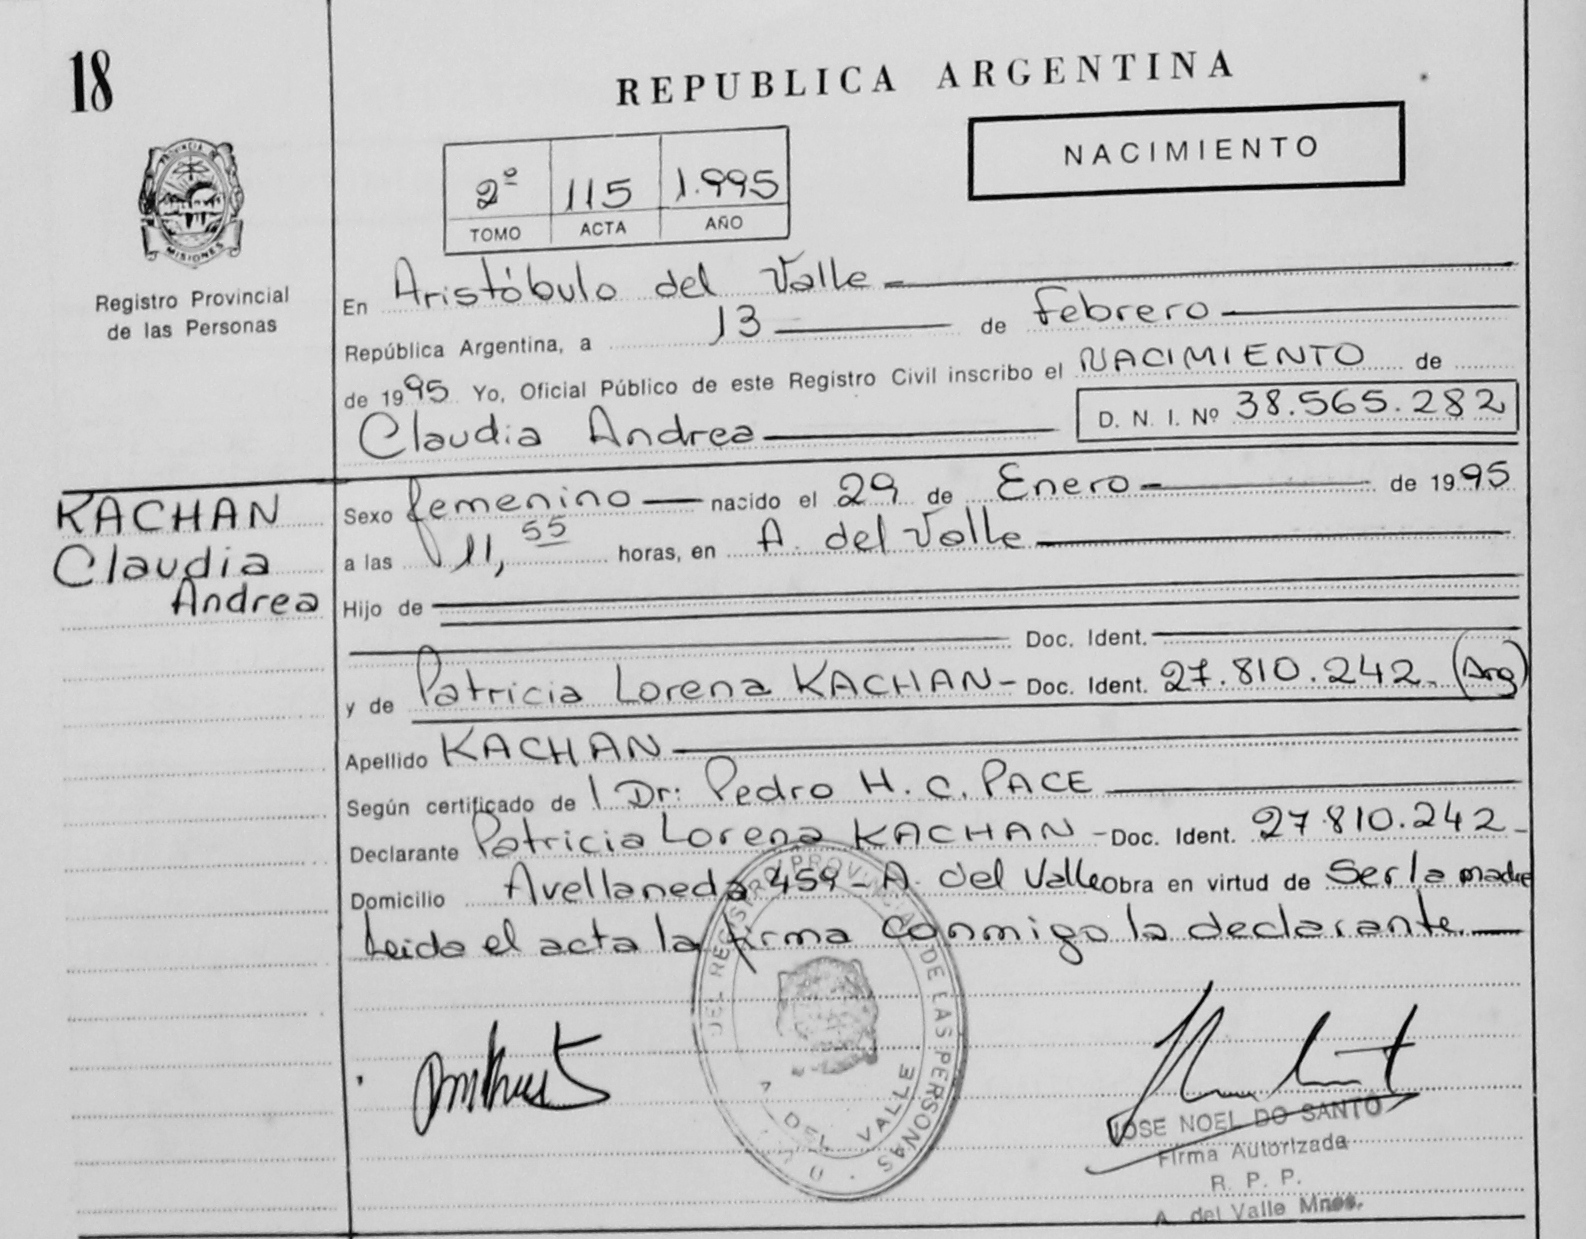 18
REPUBLICA ARGENTINA
NACIMIENTO
2º 115 1.995
TOMO ACTA AÑO
PROVINCIA DE
MISIONES
Registro Provincial
de las Personas
En Aristóbulo del Valle
República Argentina, a 13 de febrero
de 1995 Yo, Oficial Público de este Registro Civil inscribo el NACIMIENTO de
Claudia Andrea D. N. I. Nº 38.565.282
KACHAN
Claudia
Andrea
Sexo femenino nacido el 29 de Enero de 1995
a las 11,55 horas, en A. del Valle
Hijo de
Doc. Ident.
y de Patricia Lorena KACHAN - Doc. Ident. 27.810.242 - (Arg)
Apellido KACHAN
Según certificado de Dr: Pedro H. C. PACE
Declarante Patricia Lorena KACHAN - Doc. Ident. 27.810.242 -
Domicilio Avellaneda 459 - A. del Valle Obra en virtud de Ser la madre
Leida el acta la firma conmigo la declarante.
DEL REGISTRO PROVINCIAL DE LAS PERSONAS
A. DEL VALLE
JOSE NOEL DO SANTO
Firma Autorizada
R. P. P.
A. del Valle Mnes.